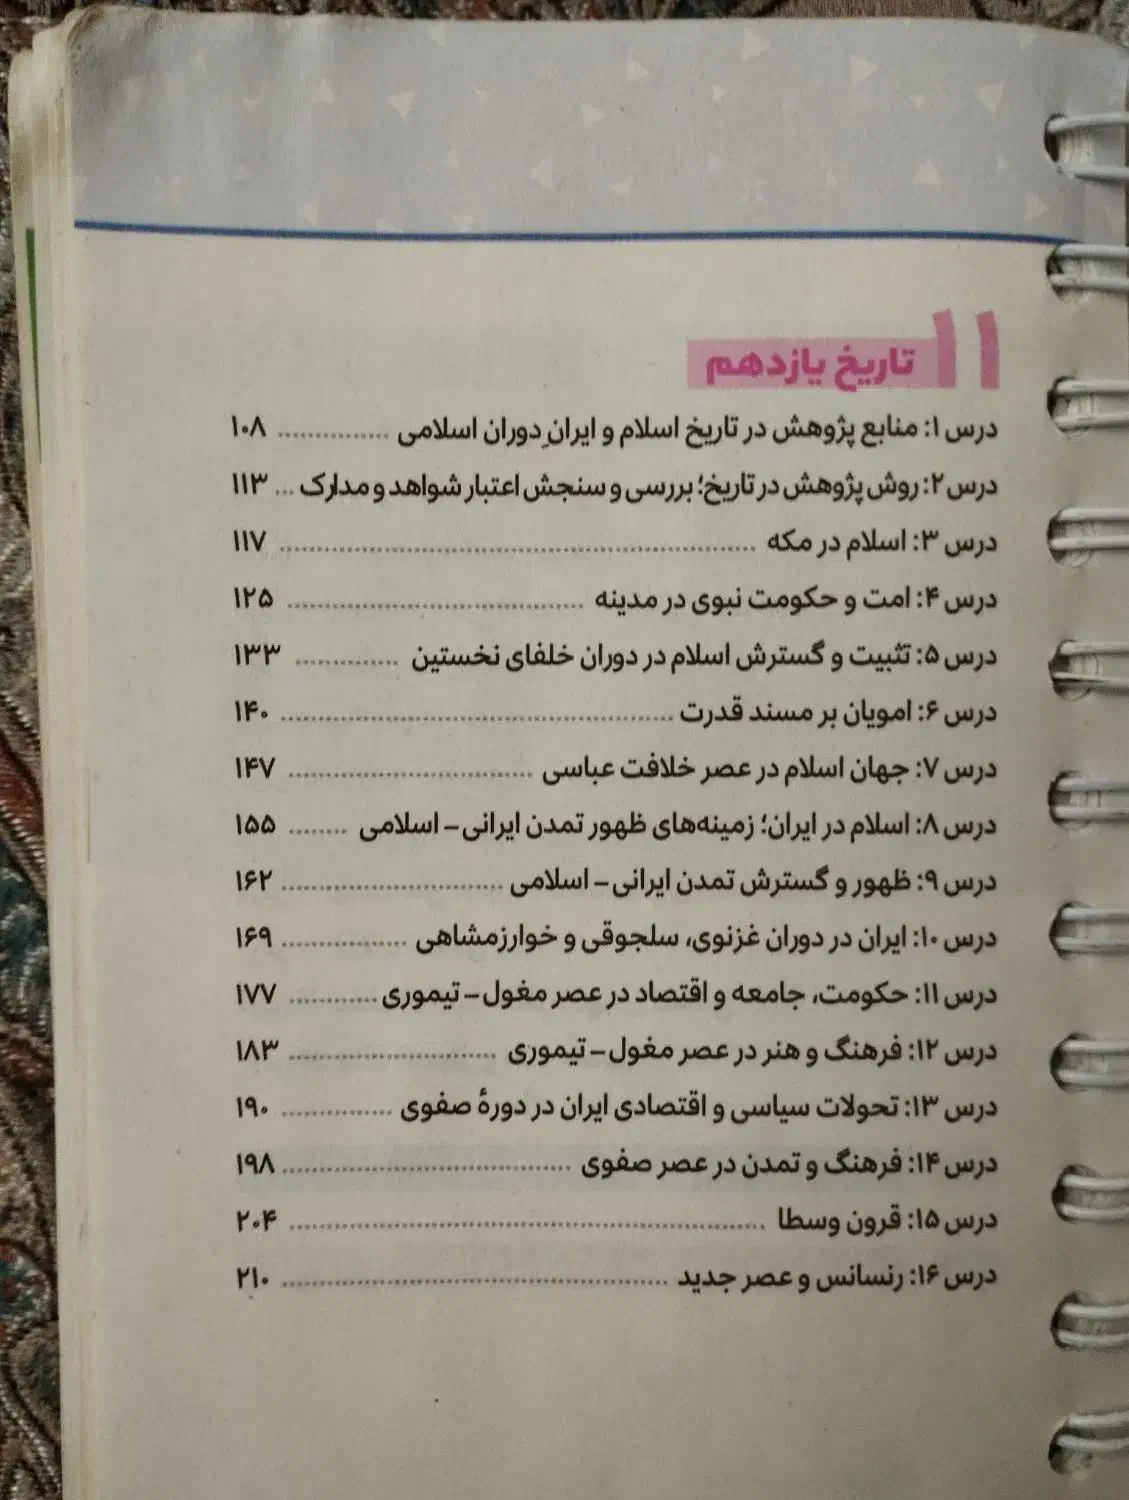 ۱۱ تاریخ یازدهم
درس ۱: منابع پژوهش در تاریخ اسلام و ایرانِ دوران اسلامی ............... ۱۰۸
درس ۲: روش پژوهش در تاریخ؛ بررسی و سنجش اعتبار شواهد و مدارک ... ۱۱۳
درس ۳: اسلام در مکه ............................................................... ۱۱۷
درس ۴: امت و حکومت نبوی در مدینه ....................................... ۱۲۵
درس ۵: تثبیت و گسترش اسلام در دوران خلفای نخستین .............. ۱۳۳
درس ۶: امویان بر مسند قدرت .................................................... ۱۴۰
درس ۷: جهان اسلام در عصر خلافت عباسی ................................ ۱۴۷
درس ۸: اسلام در ایران؛ زمینه‌های ظهور تمدن ایرانی – اسلامی ........ ۱۵۵
درس ۹: ظهور و گسترش تمدن ایرانی – اسلامی ............................. ۱۶۲
درس ۱۰: ایران در دوران غزنوی، سلجوقی و خوارزمشاهی ................. ۱۶۹
درس ۱۱: حکومت، جامعه و اقتصاد در عصر مغول – تیموری ............ ۱۷۷
درس ۱۲: فرهنگ و هنر در عصر مغول – تیموری ............................ ۱۸۳
درس ۱۳: تحولات سیاسی و اقتصادی ایران در دورهٔ صفوی ............... ۱۹۰
درس ۱۴: فرهنگ و تمدن در عصر صفوی ...................................... ۱۹۸
درس ۱۵: قرون وسطا ............................................................... ۲۰۴
درس ۱۶: رنسانس و عصر جدید ................................................... ۲۱۰